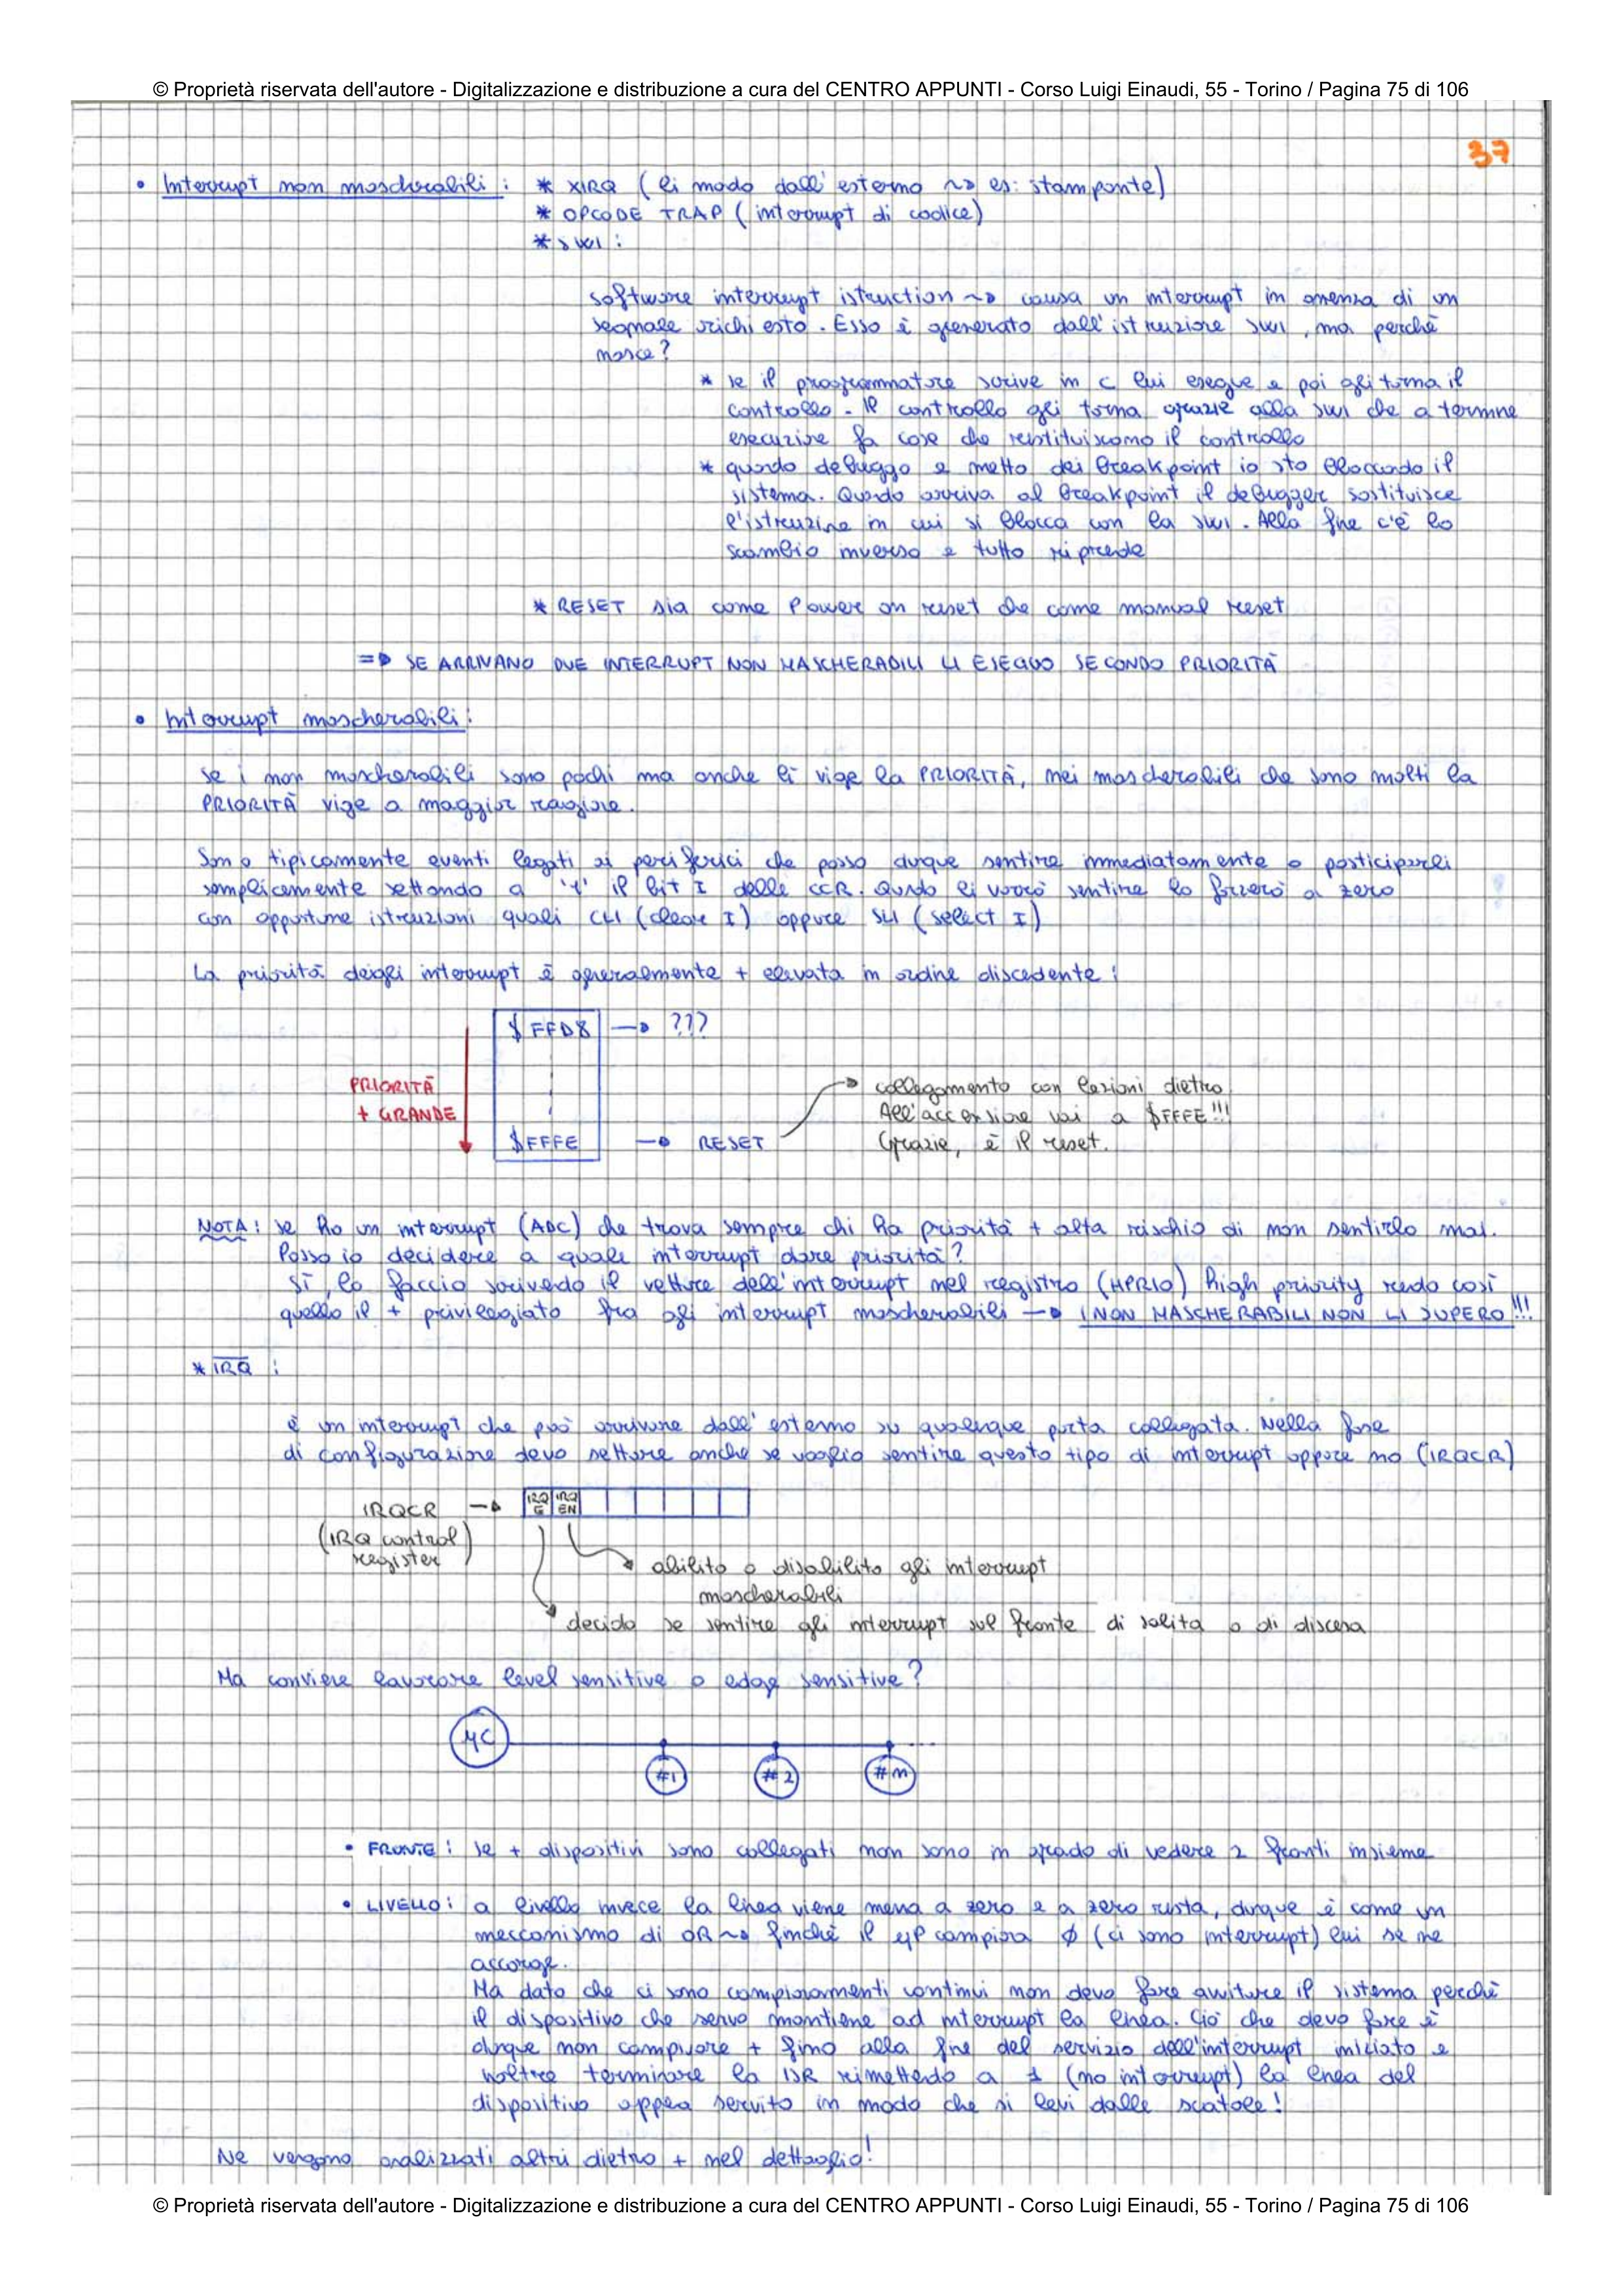 © Proprietà riservata dell'autore - Digitalizzazione e distribuzione a cura del CENTRO APPUNTI - Corso Luigi Einaudi, 55 - Torino / Pagina 75 di 106
37
• Interrupt non mascherabili : * XIRQ ( li mado dall' esterno ~> es: stampante)
* OPCODE TRAP ( interrupt di codice)
* SWI :
software interrupt istruction ~> causa un interrupt in assenza di un
segnale richiesto. Esso è generato dall'istruzione SWI, ma perchè
nasce?
* se il programmatore scrive in C lui esegue e poi gli torna il
controllo. Il controllo gli torna grazie alla SWI che a termine
esecuzione fa cose che restituiscono il controllo
* quando debuggo e metto dei breakpoint io sto bloccando il
sistema. Quando arriva al breakpoint il debugger sostituisce
l'istruzione in cui si blocca con la SWI. Alla fine c'è lo
scambio inverso e tutto riprende
* RESET sia come Power on reset che come manual reset
=> SE ARRIVANO DUE INTERRUPT NON MASCHERABILI LI ESEGUO SECONDO PRIORITÀ
• Interrupt mascherabili :
Se i non mascherabili sono pochi ma anche lì vige la PRIORITÀ, nei mascherabili che sono molti la
PRIORITÀ vige a maggior ragione.
Sono tipicamente eventi legati ai periferici che posso dunque sentire immediatamente o posticiparli
semplicemente settando a '1' il bit I delle CCR. Quando li vorrò sentire lo forzerò a zero
con opportune istruzioni quali CLI (cleare I) oppure SLI ( select I )
La priorità deigli interrupt è generalmente + elevata in ordine discedente :
$ FFD8 —> ???
PRIORITÀ
+ GRANDE
$FFFE —> RESET
collegamento con lezioni dietro.
All'accensione vai a $FFFE!!!
Grazie, è il reset.
NOTA : Se ho un interrupt (ADC) che trova sempre chi ha priorità + alta rischio di non sentirlo mai.
Posso io decidere a quale interrupt dare priorità?
Sì, lo faccio scrivendo il vettore dell'interrupt nel registro (HPRIO) high priority rendo così
quello il + privilegiato fra gli interrupt mascherabili —> I NON MASCHERABILI NON LI SUPERO!!!
* IRQ :
è un interrupt che può arrivare dall' esterno su qualunque porta collegata. Nella fase
di configurazione devo settare anche se voglio sentire questo tipo di interrupt oppure no (IRQCR)
IRQCR —> IRQ E IRQ EN
(IRQ control register)
abilito o disabilito gli interrupt
mascherabili
decido se sentire gli interrupt sul fronte di salita o di discesa
Ma conviene lavorare level sensitive o edge sensitive?
µC
#1 #2 #n
• FRONTE : se + dispositivi sono collegati non sono in grado di vedere 2 fronti insieme
• LIVELLO : a livello invece la linea viene messa a zero e a zero resta, dunque è come un
meccanismo di OR ~> finchè il µP campiona Ø (ci sono interrupt) lui se ne
accorge.
Ma dato che ci sono campionamenti continui non devo fare avvitare il sistema perchè
il dispositivo che servo mantiene ad interrupt la linea. Ciò che devo fare è
dunque non campionare + fino alla fine del servizio dell'interrupt iniziato e
inoltre terminare la ISR rimettendo a 1 (no interrupt) la linea del
dispositivo appena servito in modo che si levi dalle scatole!
Ne vengono analizzati altri dietro + nel dettaglio!
© Proprietà riservata dell'autore - Digitalizzazione e distribuzione a cura del CENTRO APPUNTI - Corso Luigi Einaudi, 55 - Torino / Pagina 75 di 106